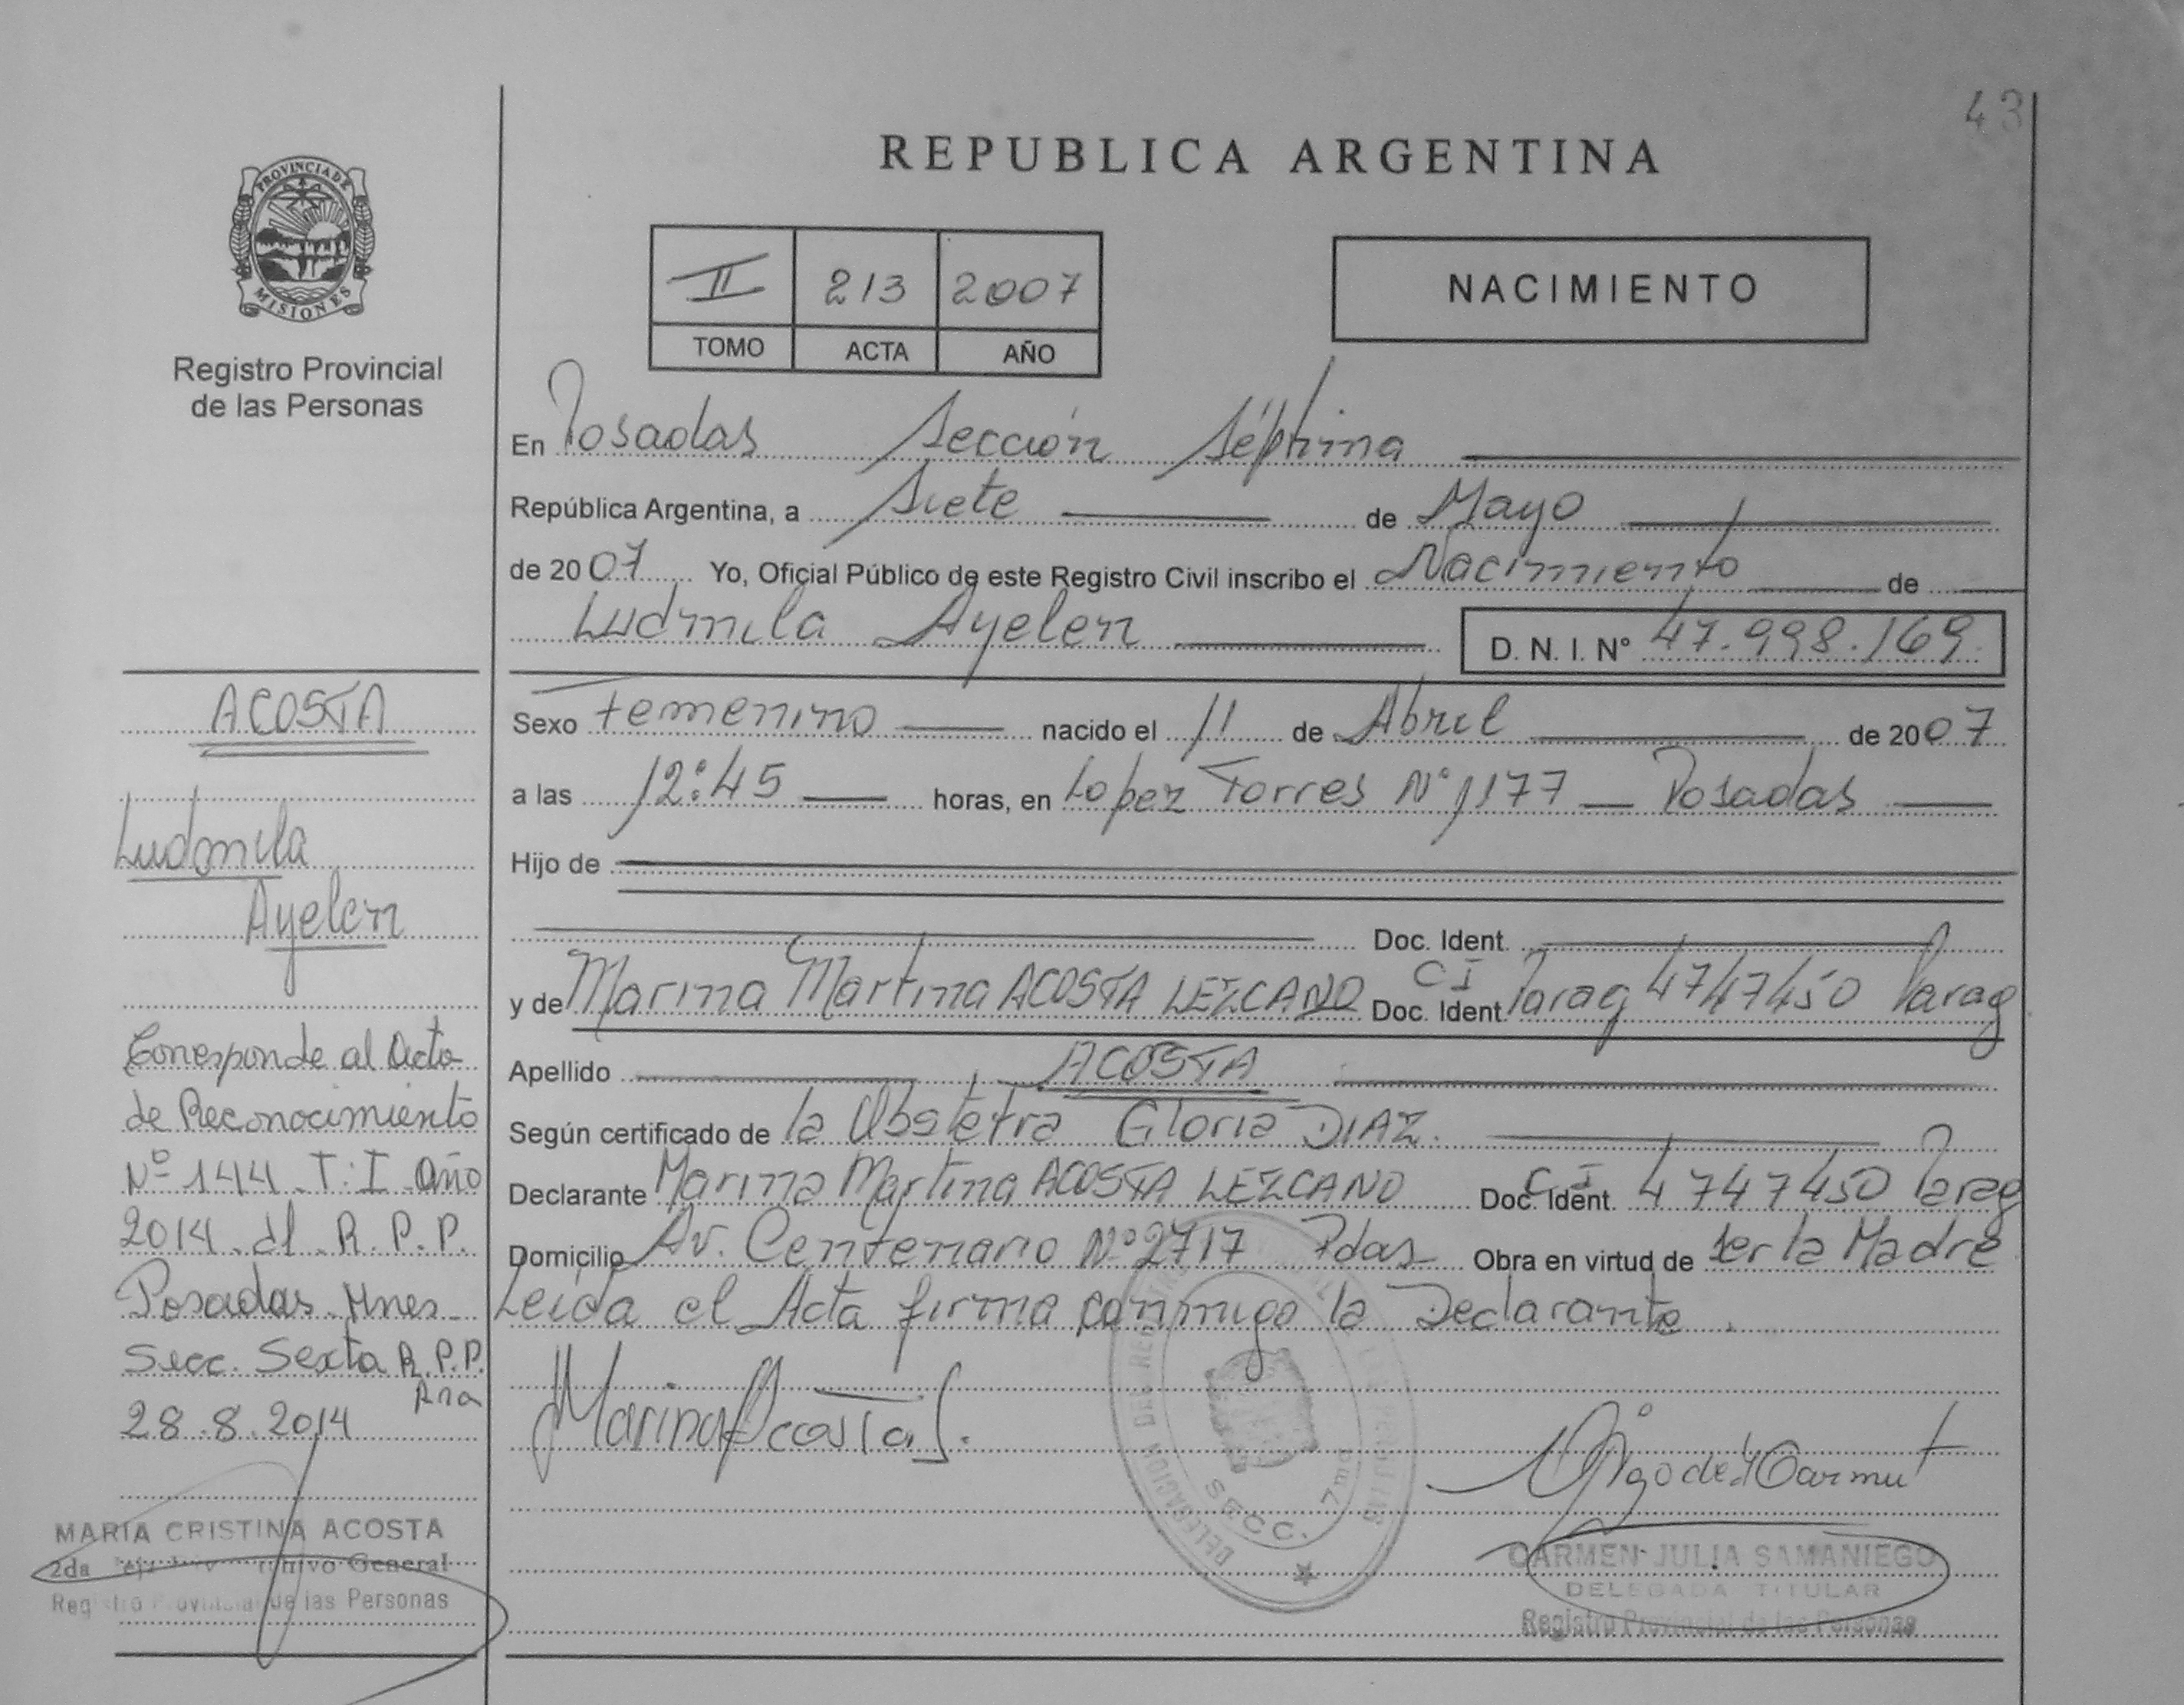 43
REPUBLICA ARGENTINA
PROVINCIA DE
MISIONES
Registro Provincial
de las Personas
II 213 2007
TOMO ACTA AÑO
NACIMIENTO
En Posadas Sección Séptima
República Argentina, a Siete de Mayo
de 2007 Yo, Oficial Público de este Registro Civil inscribo el Nacimiento de
Ludmila Ayelen D. N. I. Nº 47.998.169
Sexo Femenino nacido el 11 de Abril de 2007
a las 12:45 horas, en Lopez Torres Nº 1177 _ Posadas
Hijo de
Doc. Ident.
y de Marina Martina ACOSTA LEZCANO Doc. Ident. CI Parag 4747450 Parag
Apellido ACOSTA
Según certificado de la Obstetra Gloria DIAZ.
Declarante Marina Martina ACOSTA LEZCANO Doc. Ident. CI 4747450 Parag
Domicilio Av. Centenario Nº 2717 Pdas Obra en virtud de ser la Madre
Leida el Acta firma conmigo la Declarante.
Marina Acosta L.
SECC. 7ma
CARMEN JULIA SAMANIEGO
DELEGADA TITULAR
Registro Provincial de las Personas
ACOSTA
Ludmila
Ayelen
Corresponde al Acta
de Reconocimiento
Nº 144 T: I Año
2014 dl R.P.P.
Posadas Mnes
Secc. Sexta R.P.P.
28.8.2014
MARIA CRISTINA ACOSTA
2da General
Registro Provincial de las Personas